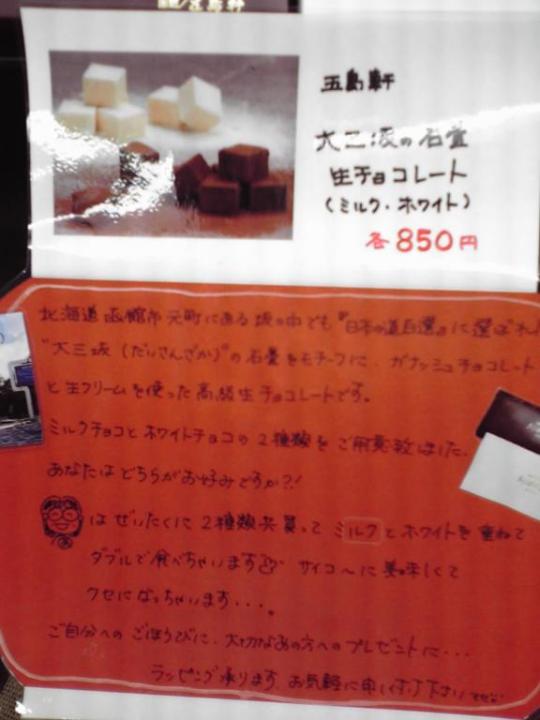 五島軒
大三坂の石畳
生チョコレート
(ミルク・ホワイト)
各850円
北海道函館市元町にある坂の中でも"日本の道百選"に選ばれ
"大三坂(だいさんざか)"の石畳をモチーフに、ガナッシュチョコレート
と生クリームを使った高級生チョコレートです。
ミルクチョコとホワイトチョコの2種類をご用意致しました。
あなたはどちらがお好みですか?!
はぜいたくに2種類共買って ミルクとホワイトを重ねて
ダブルで食べちゃいます サイコ〜に美味しくて
クセになっちゃいます・・・。
ご自分へのごほうびに、大切なあの方へのプレゼントに・・・
ラッピング承ります。お気軽に申し付け下さいませ